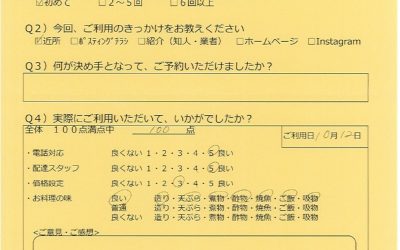 ☑初めて　　□２～５回　　□６回以上
Ｑ２）今回、ご利用のきっかけをお教えください
☑近所　□ﾎﾟｽﾃｨﾝｸﾞﾁﾗｼ　□紹介（知人・業者）　□ホームページ　□Instagram
Ｑ３）何が決め手となって、ご予約いただけましたか？
Ｑ４）実際にご利用いただいて、いかがでしたか？
全体　１００点満点中　100　点
ご利用日10月12日
・電話対応　良くない１・２・３・４・５良い
・配達スタッフ　良くない１・２・３・４・５良い
・価格設定　良くない１・２・３・４・５良い
・お料理の味　良い　造り・天ぷら・煮物・酢物・焼魚・ご飯・吸物
普通　造り・天ぷら・煮物・酢物・焼魚・ご飯・吸物
良くない　造り・天ぷら・煮物・酢物・焼魚・ご飯・吸物
＜ご意見・ご感想＞